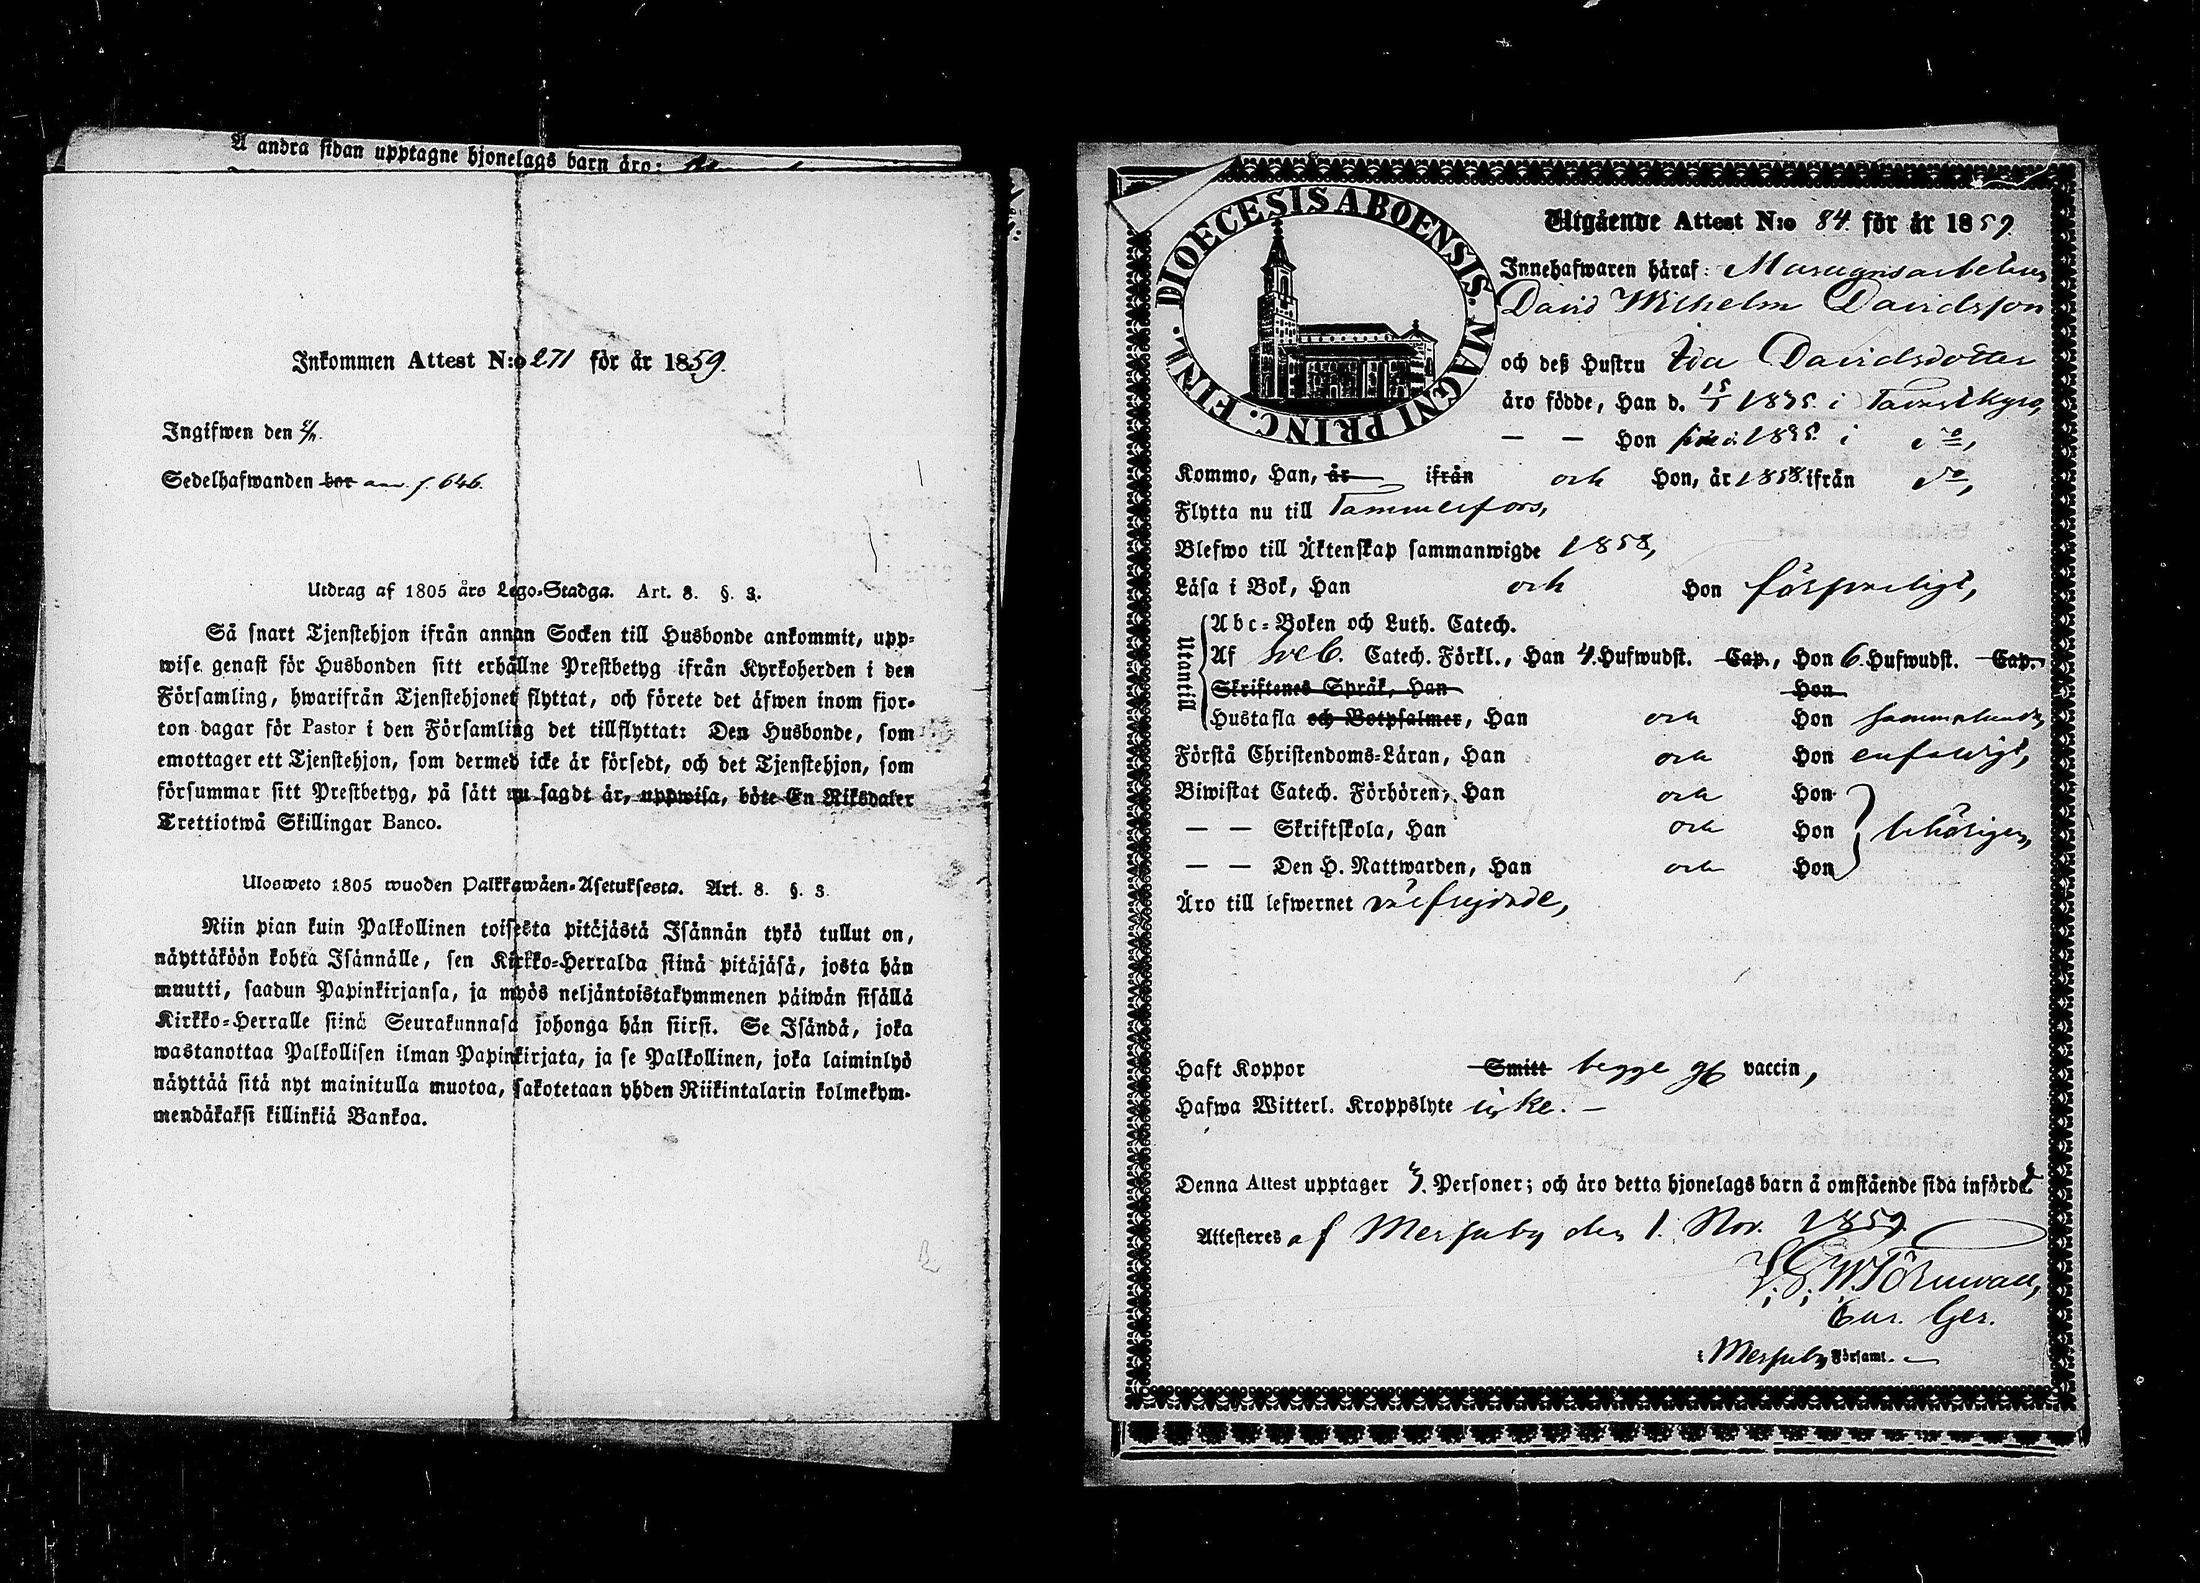 Å andra sidan upptagne hjonelags barn äro:
Inkommen Attest N:o 271 för år 1859.
Ingifwen den
Sedelhafwanden bor f. 646.
Utdrag af 1805 års Lego-Stadga. Art. 8. §. 3.
Så snart Tjenstehjon ifrån annan Socken till Husbonde ankommit, upp-
wise genast för Husbonden sitt erhållne Prestbetyg ifrån Kyrkoherden i den
Församling, hwarifrån Tjenstehjonet flyttat, och förete det äfwen inom fjor-
ton dagar för Pastor i den Församling det tillflyttat: Den Husbonde, som
emottager ett Tjenstehjon, som dermed icke är försedt, och det Tjenstehjon, som
försummar sitt Prestbetyg, på sätt nu sagdt är, uppwisa, böte En Riksdaler
Trettiotwå Skillingar Banco.
Ulosweto 1805 wuoden Palkkawäen-Asetuksesta. Art. 8. §. 3.
Niin pian kuin Palkollinen toisesta pitäjästä Isännän tykö tullut on,
näyttäköön kohta Isännälle, sen Kirkko-Herralda siinä pitäjäsä, josta hän
muutti, saadun Papinkirjansa, ja myös neljäntoistakymmenen päiwän sisällä
Kirkko-Herralle siinä Seurakunnasa johonga hän siirsi. Se Isändä, joka
wastanottaa Palkollisen ilman Papinkirjata, ja se Palkollinen, joka laiminlyö
näyttää sitä nyt mainitulla muotoa, sakotetaan yhden Riikintalarin kolmekym-
mendäkaksi killinkiä Bankoa.
DIOECESIS ABOENSIS. MAGNI PRINC. FINL.
Utgående Attest N:o 84 för år 1859.
Innehafwaren häraf:
David Wilhelm Davidsson
och deß Hustru Ida Davidsdotter
äro födde, Han d. 15/5 1835 i Tavastkyro,
— — Hon 1835 i do,
Kommo, Han, år ifrån och Hon, år 1858 ifrån do,
Flytta nu till Tammerfors,
Blefwo till Äktenskap sammanwigde 1858,
Läsa i Bok, Han och Hon försvarligt,
Utantill
Abc-Boken och Luth. Catech.
Af Sveb. Catech. Förkl., Han 4. Hufwudst. Cap., Hon 6. Hufwudst. Cap.
Skriftenes Språk, Han Hon
Hustafla och Botpsalmer, Han och Hon sammaledes,
Förstå Christendoms-Läran, Han och Hon enfaldigt,
Biwistat Catech. Förhören, Han och Hon
— — Skriftskola, Han och Hon behörigen,
— — Den H. Nattwarden, Han och Hon
Äro till lefwernet välfrejdade,
Haft Koppor Smitt begge gt vaccin,
Hafwa Witterl. Kroppslyte icke. —
Denna Attest upptager 3. Personer; och äro detta hjonelags barn å omstående sida införde
Attesteras af Messuby den 1. Nov. 1859.
W Törnwall,
i Messuby Församl. —